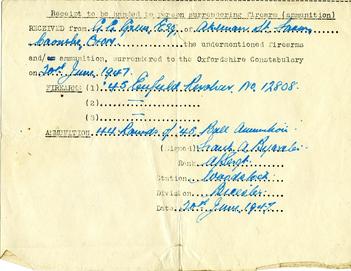 Receipt to be handed to person surrendering firearm (ammunition)
RECEIVED from G. E. Green, Esq., of Akeman St Farm
the undermentioned firearms
and/or ammunition, surrendered to the Oxfordshire Constabulary
on 20th June 1947.
FIREARMS: (1) .45 Enfield Revolver, No 12808.
(2)
(3)
AMMUNITION 44 Rounds of .45 Ball Ammunition
(Signed) Frank A.
Rank
Station Woodstock
Division Bicester
Date 20th June, 1947